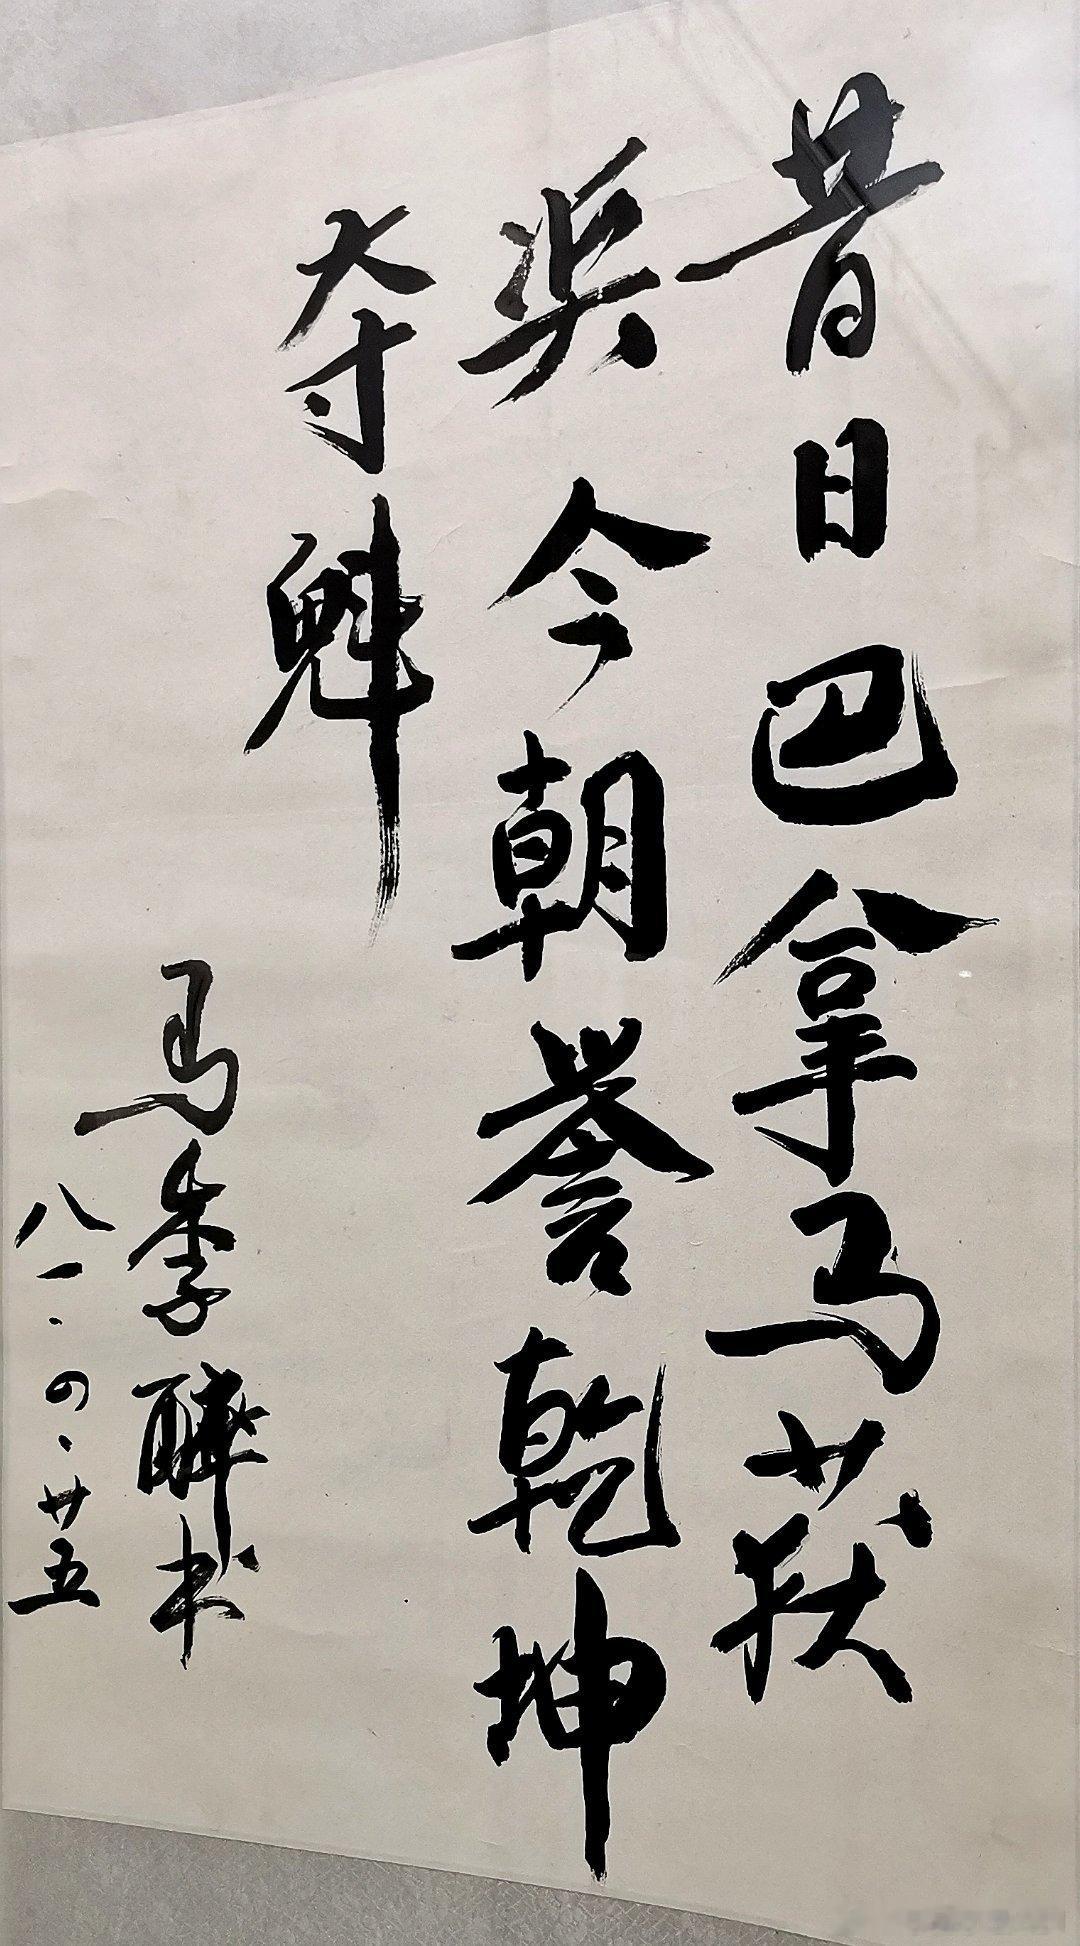 昔日巴拿马获
奖今朝誉乾坤
夺魁
马季醉书
八一·四·廿五